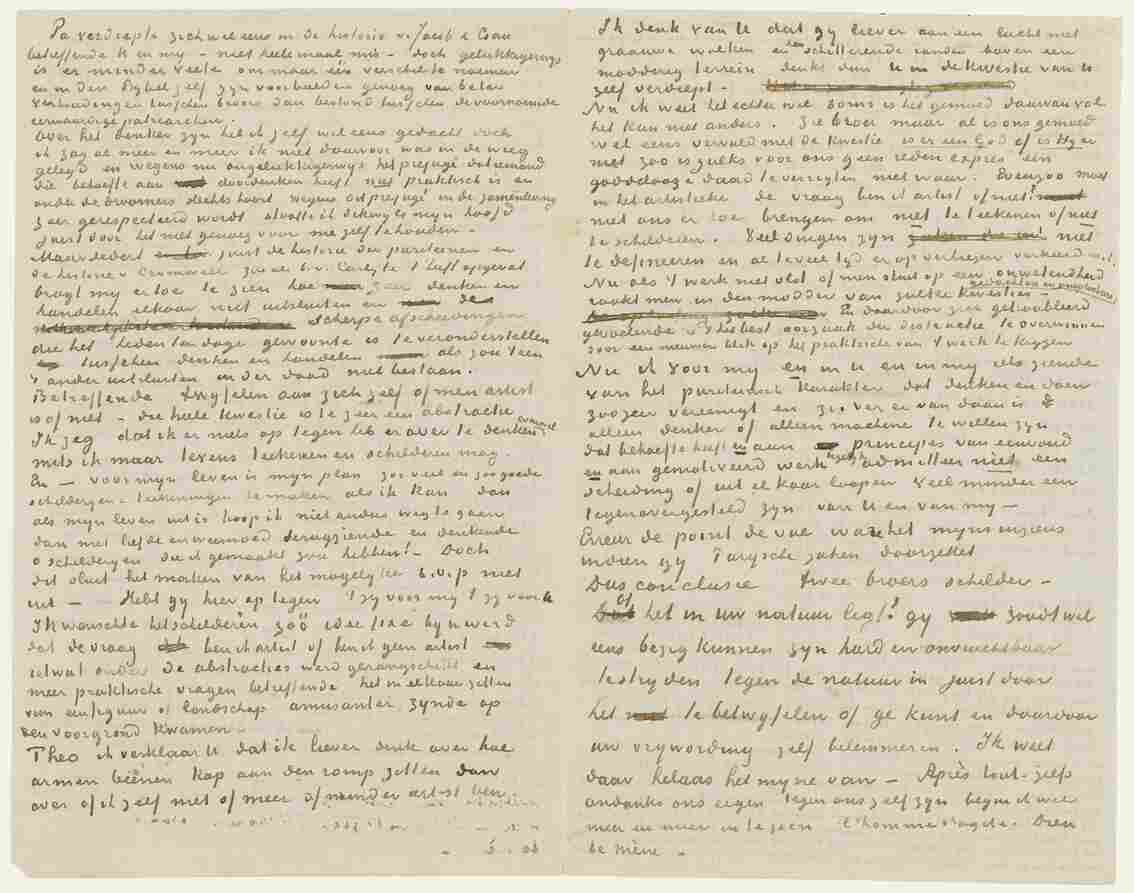 Pa verdiepte zich wel eens in de historie v. Jacob & Esau
betreffende U en my – niet heelemaal mis – doch gelukkigerwys
is er minder veete om maar één verschil te noemen
en in den Bybel zelf zyn voorbeelden genoeg van beter
verhoudingen tusschen broers dan bestond tusschen de voornoemde
eerwaardige patriarchen.
Over het denker zyn heb ik zelf wel eens gedacht doch
ik zag al meer en meer ik niet daarvoor was in de wieg
gelegd en wegens nu ongelukkigerwys het prejugé dat iemand
die behoefte aan doordenken heeft niet praktisch is en
onder de droomers slechts hoort wegens dit prejugé in de zamenleving
zeer gerespecteerd wordt stootte ik dikwyls myn hoofd
juist door het niet genoeg voor me zelf te houden.
Maar sedert juist de historie der puriteinen en
de historie v Cromwell zooals b.v. Carlyle 't heeft opgevat
bragt my er toe te zien hoe zeer denken en
handelen elkaar niet uitsluiten en de
scherpe afscheidingen
die het heden ten dage gewoonte is te veronderstellen
tusschen denken en handelen als zou 't een
't ander uitsluiten in der daad niet bestaan.
Betreffende twyfelen aan zich zelf of men artist
is of niet – die heele kwestie is te zeer eene abstractie
Ik zeg dat ik er niets op tegen heb er over te denken evenwel
mits ik maar tevens teekenen en schilderen mag.
En – voor myn leven is myn plan zooveel en zoo goede
schilderyen & teekeningen te maken als ik kan dan
als myn leven uit is hoop ik niet anders weg te gaan
dan met liefde en weemoed terugziende en denkende
o schilderyen die ik gemaakt zou hebben! – Doch
dit sluit het maken van het mogelyke s.v.p niet
uit – Hebt gy hier op tegen 't zy voor my 't zy voor U
Ik wenschte het schilderen zoo idee fixe by U werd
dat de vraag ben ik artist of ben ik geen artist
ietwat onder de abstracties werd gerangschikt en
meer praktische vragen betreffende het in elkaar zetten
van een figuur of landschap amusanter zynde op
den voorgrond kwamen.
Theo ik verklaar U dat ik liever denk over hoe
armen beenen kop aan den romp zitten dan
over of ik zelf niet of meer of minder artist ben.
Ik denk van U dat gy liever aan een lucht met
graauwe wolken en hun schitterende randen boven een
modderig terrein denkt dan U in de kwestie van U
zelf verdiept –
Nu ik weet het echter wel soms is het gemoed daarvan vol
het kan niet anders. Zie broer maar al is ons gemoed
wel eens vervuld met de kwestie is er een God of is Hy er
niet zoo is zulks voor ons geen reden expres een
goddelooze daad te verrigten niet waar. Evenzoo moet
in het artistieke de vraag ben ik artist of niet!
niet ons er toe brengen om niet te teekenen of niet
te schilderen. Veel dingen zyn niet
te definieeren en al te veel tyd er op verliezen verkeerd m.i.
Nu als 't werk niet vlot of men stuit op een onwetendheid
raakt men in den modder van zulke kwesties –
gedachten en problemen
En daardoor zich getroubleerd
gevoelende is 't het best oorzaak der distractie te overwinnen
door een nieuwen blik op het praktische van 't werk te krijgen
Nu ik voor my en in U en in my iets ziende
van het puriteinsch karakter dat denken en doen
zoo zeer vereenigt en zoo ver er van daan is &
alleen denker of alleen machine te willen zyn
dat behoefte heeft en aan principes van eenvoud
en aan gemotiveerd werk admitteer niet een
scheiding of uit elkaar loopen veel minder een
tegenovergesteld zyn van U en van my –
Erreur de point de vue ware het myns inziens
indien gy Parysche zaken doorzettet
Dus conclusie twee broers schilder –
Of het in uw natuur legt? gy zoudt wel
eens bezig kunnen zyn hard en onvruchtbaar
te stryden tegen de natuur in juist door
het te betwyfelen of ge kunt en daardoor
uw vrywording zelf belemmeren. Ik weet
daar helaas het myne van – Après tout - zelfs
ondanks ons eigen tegen ons zelf zyn begin ik wel
meer en meer in te zien l'homme s'agite. Dieu
le mène –